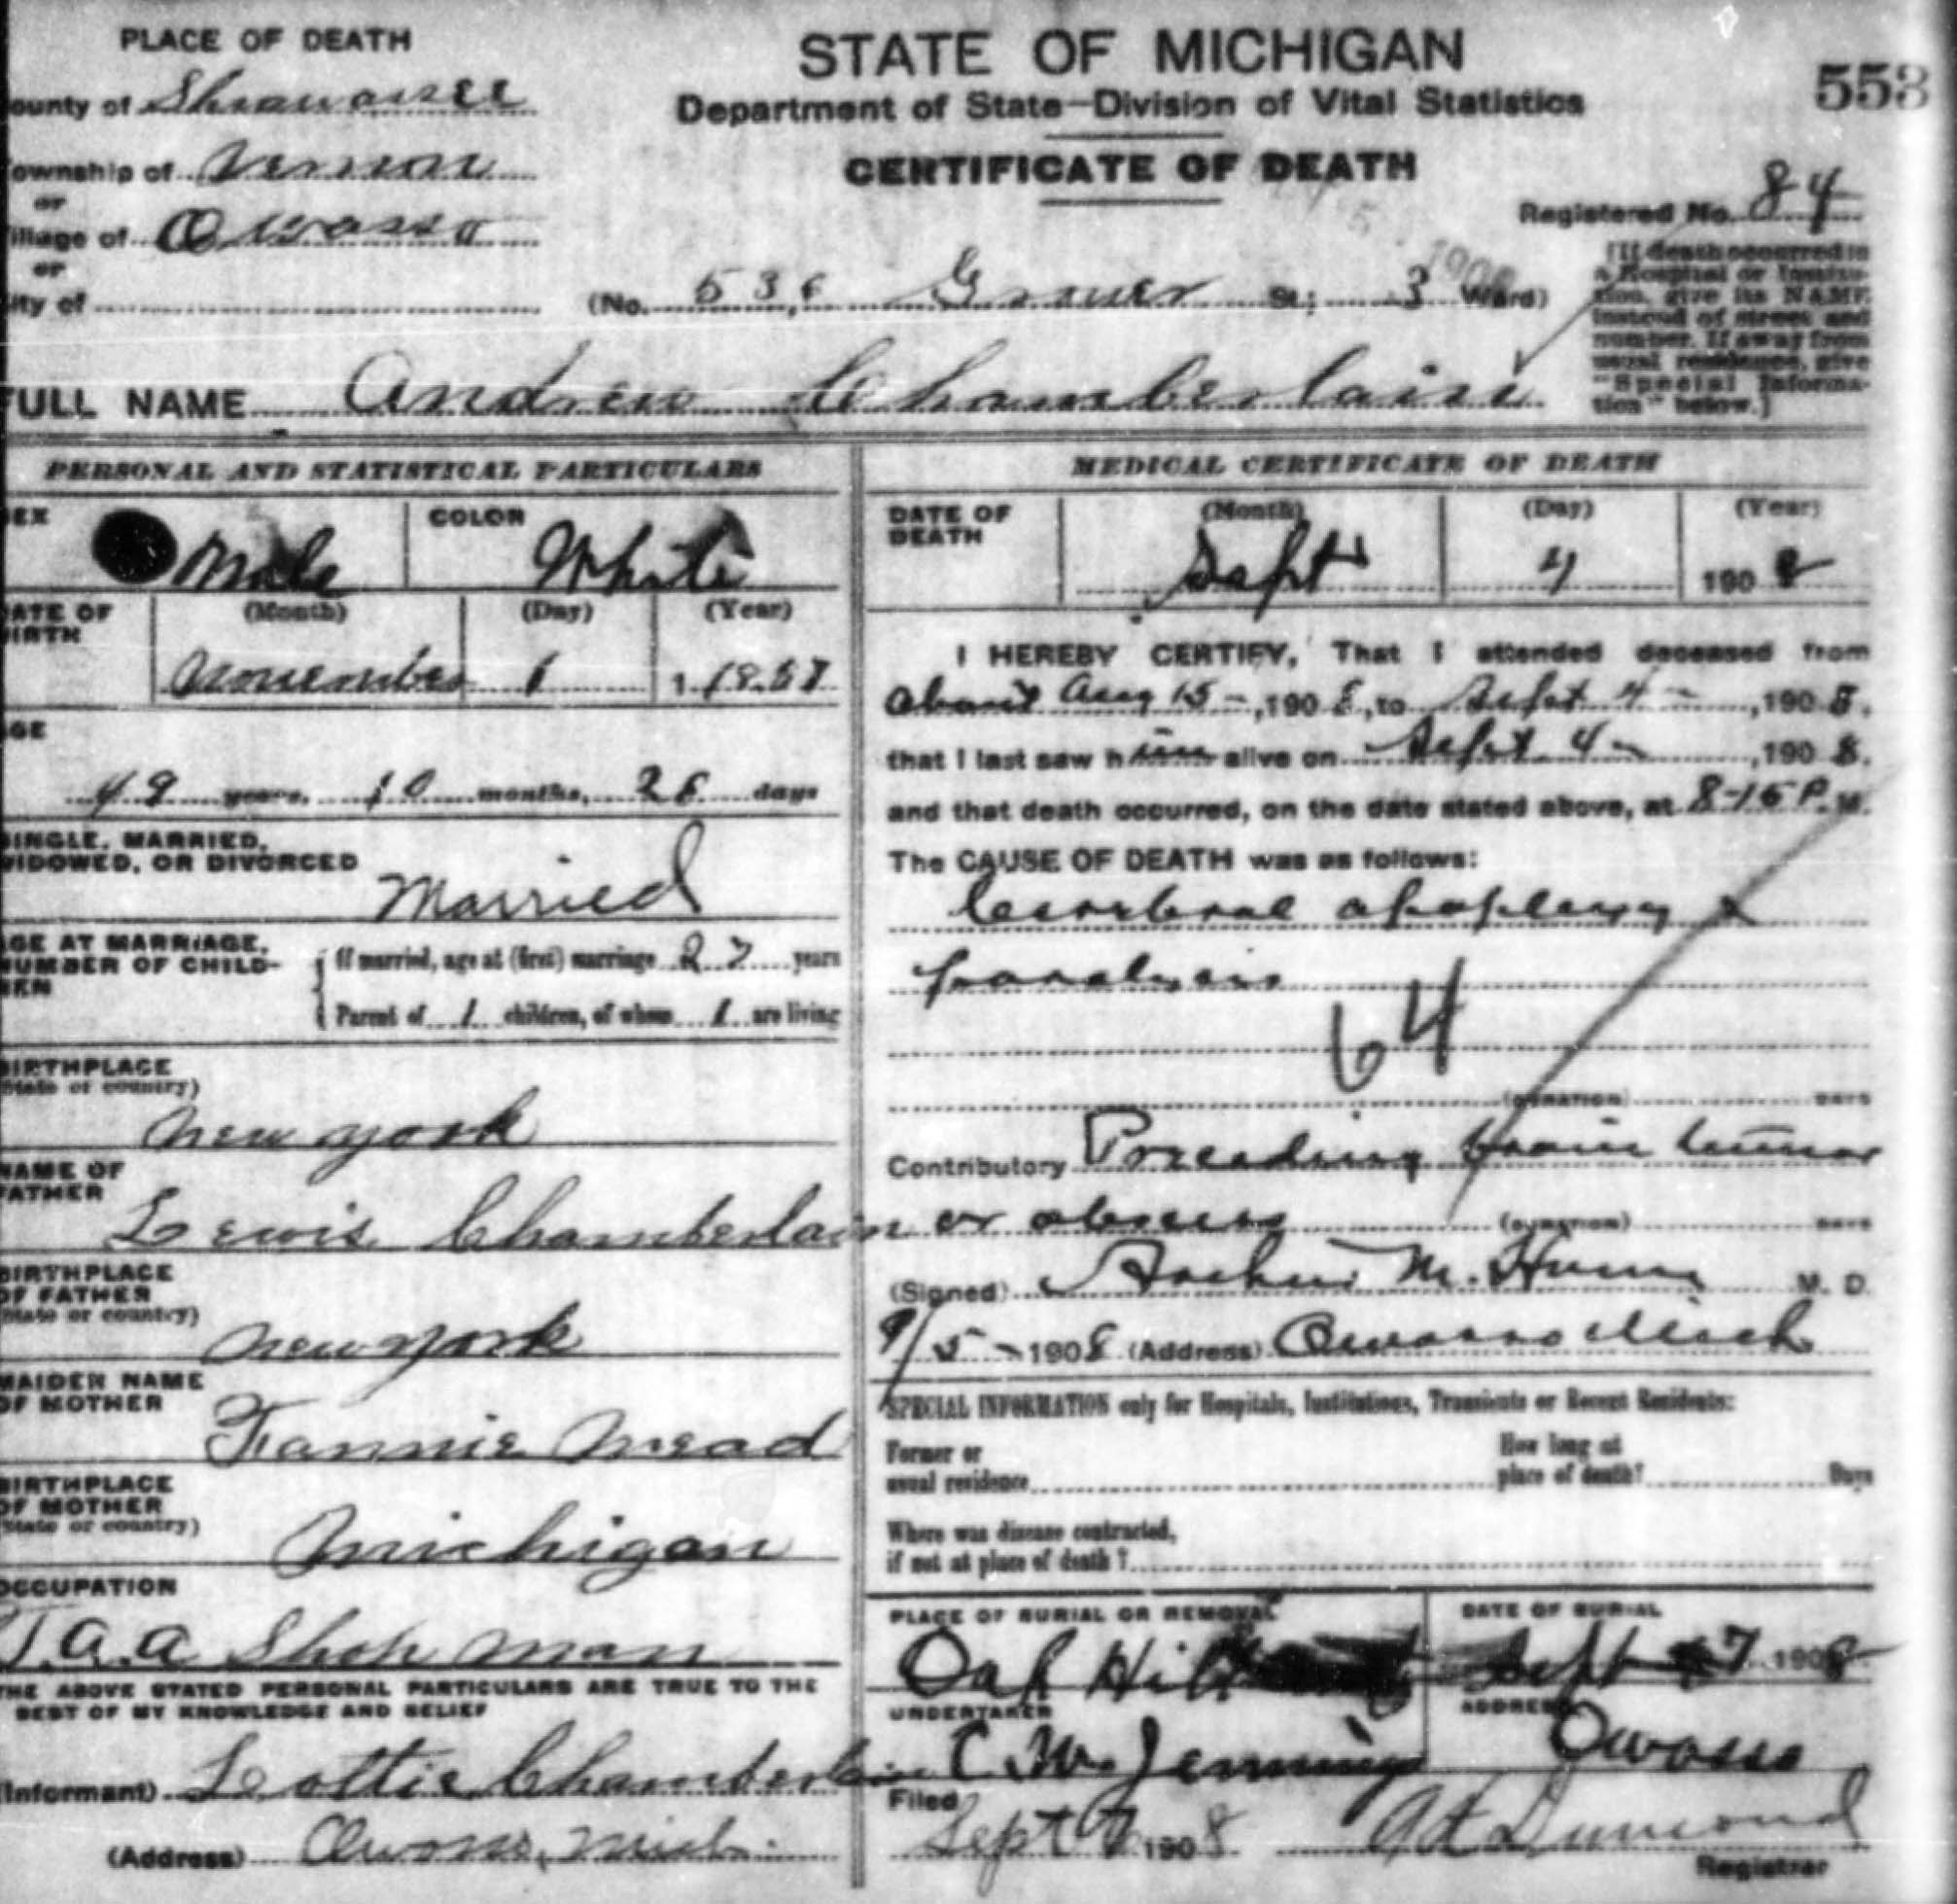 PLACE OF DEATH
ounty of Shiawassee
ownship of Vernon
or
illage of Owosso
or
ity of
STATE OF MICHIGAN
Department of State—Division of Vital Statistics
CERTIFICATE OF DEATH
553
Registered No. 84
(No. 536 St; 3 Ward)
[If death occurred in
a Hospital or Institu-
tion, give its NAME
instead of street and
number. If away from
usual residence, give
"Special Informa-
tion" below.]
FULL NAME Andrew Chamberlain
PERSONAL AND STATISTICAL PARTICULARS
EX Male
COLOR White
DATE OF BIRTH
(Month) (Day) (Year)
November 1 1857
GE
49 years, 10 months, 26 days
SINGLE, MARRIED,
WIDOWED, OR DIVORCED
Married
GE AT MARRIAGE,
NUMBER OF CHILD-
REN
If married, age at (first) marriage 27 years
Parent of 1 children, of whom 1 are living
BIRTHPLACE
(State or country)
New York
NAME OF
FATHER
Lewis Chamberlain
BIRTHPLACE
OF FATHER
(State or country)
New York
MAIDEN NAME
OF MOTHER
Fannie Mead
BIRTHPLACE
OF MOTHER
(State or country)
Michigan
OCCUPATION
T.a.a Shop man
THE ABOVE STATED PERSONAL PARTICULARS ARE TRUE TO THE
BEST OF MY KNOWLEDGE AND BELIEF
(Informant) Lottie Chamberlain
(Address) Owosso, Mich.
MEDICAL CERTIFICATE OF DEATH
DATE OF
DEATH
(Month) (Day) (Year)
Sept 4 1908
I HEREBY CERTIFY, That I attended deceased from
about Aug 15 -, 1908, to Sept 4 -, 1908.
that I last saw him alive on Sept 4 -, 1908.
and that death occurred, on the date stated above, at 8-15 P. M.
The CAUSE OF DEATH was as follows:
Cerebral apoplexy &
paralysis
64
(DURATION) DAYS
Contributory Preceding brain tumor
or abscess (DURATION) DAYS
(Signed) M. Hume M. D.
9/5 - 1908 (Address) Owosso Mich
SPECIAL INFORMATION only for Hospitals, Institutions, Transients or Recent Residents:
Former or
usual residence
How long at
place of death? Days
Where was disease contracted,
if not at place of death?
PLACE OF BURIAL OR REMOVAL
Oak Hill
DATE OF BURIAL
Sept 7 1908
UNDERTAKER
C. W. Jennings
ADDRESS
Owosso
Filed
Sept 7 1908 Dumond
Registrar